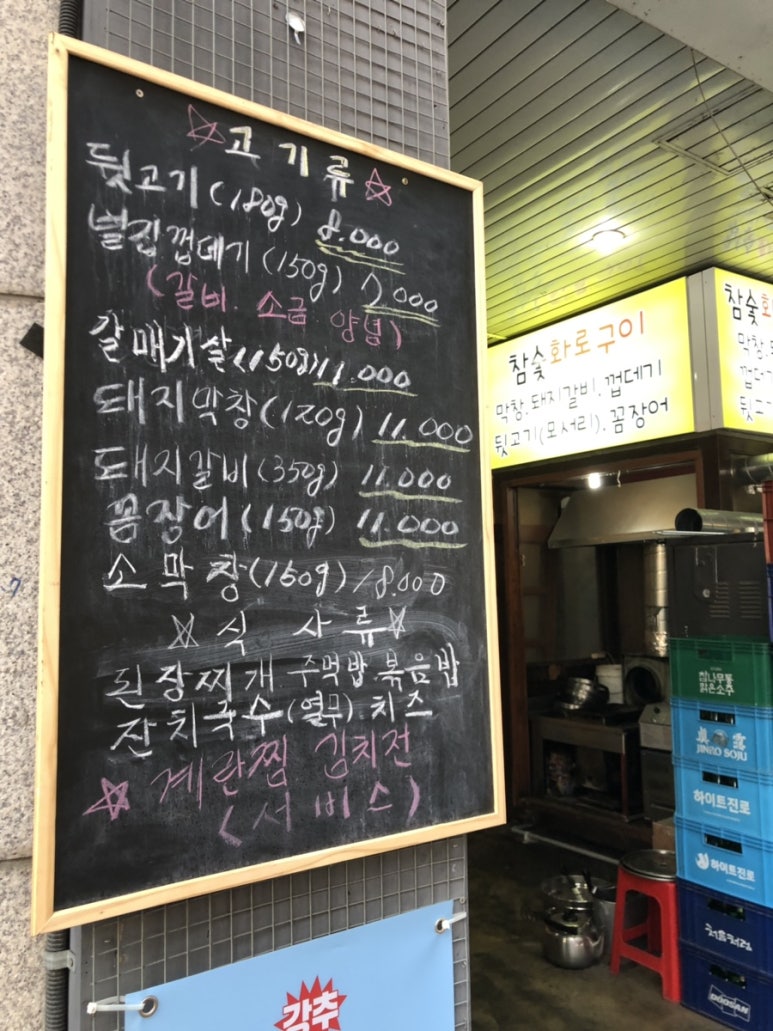 고기류
뒷고기(180g) 8.000
벌집껍데기(150g) 7.000
(갈비.소금 양념)
갈매기살(150g) 11.000
돼지막창(120g) 11.000
돼지갈비(350g) 11.000
꼼장어(150g) 11.000
소막창(150g) 18.000
식사류
된장찌개 주먹밥 볶음밥
잔치국수(열무) 치즈
계란찜 김치전
(서비스)
강추
참숯화로구이
막창.돼지갈비.껍데기
뒷고기(모서리).꼼장어
참숯화
막창.
껍데기
뒷고
참나무통
맑은소주
JINRO SOJU
하이트진로
하이트진로
처음처럼
DOOSAN